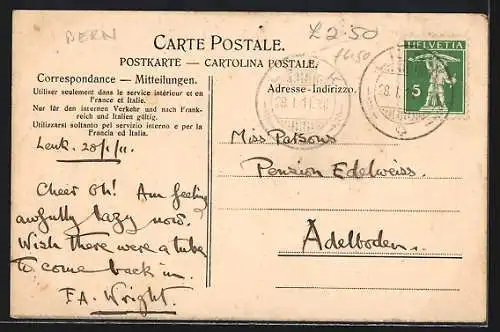 BERN
£2.50
£4.50
CARTE POSTALE.
POSTKARTE — CARTOLINA POSTALE.
Correspondance — Mitteilungen.
Utiliser seulement dans le service intérieur et en
France et Italie.
Nur für den internen Verkehr und nach Frank-
reich und Italien gültig.
Utilizzarsi soltanto pel servizio interno e per la
Francia ed Italia.
Adresse-Indirizzo.
HELVETIA
5
28.I.11.
28.I.
Lenk. 28/1/11.
Cheer Oh! Am feeling
awfully lazy now.
Wish there were a tube
to come back in.
F.A. Wright.
Miss Parsons
Pension Edelweiss.
Adelboden.